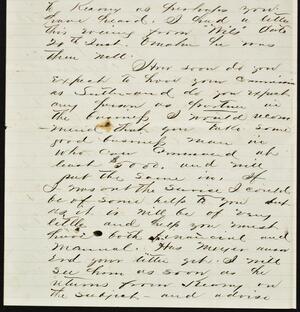 to Kearny as perhaps you
have heard. I had a letter
this evening from "Will" date
20th Inst. Omaha he was
then well.
How soon do you
Expect to have your Commission
as Sutler and do you expect
any person as partner in
the business I would recom-
mend that you take some
good business man in
who can command at
least $5000. and will
put the same in. If
I was out the Service I could
be of some help to you but
as it is will be of very
little and help you must
have both financial and
manual. Has Meyer answ
Erd your letter yet. I will
see him as soon as he
returns from Kearny on
the subject - and advise